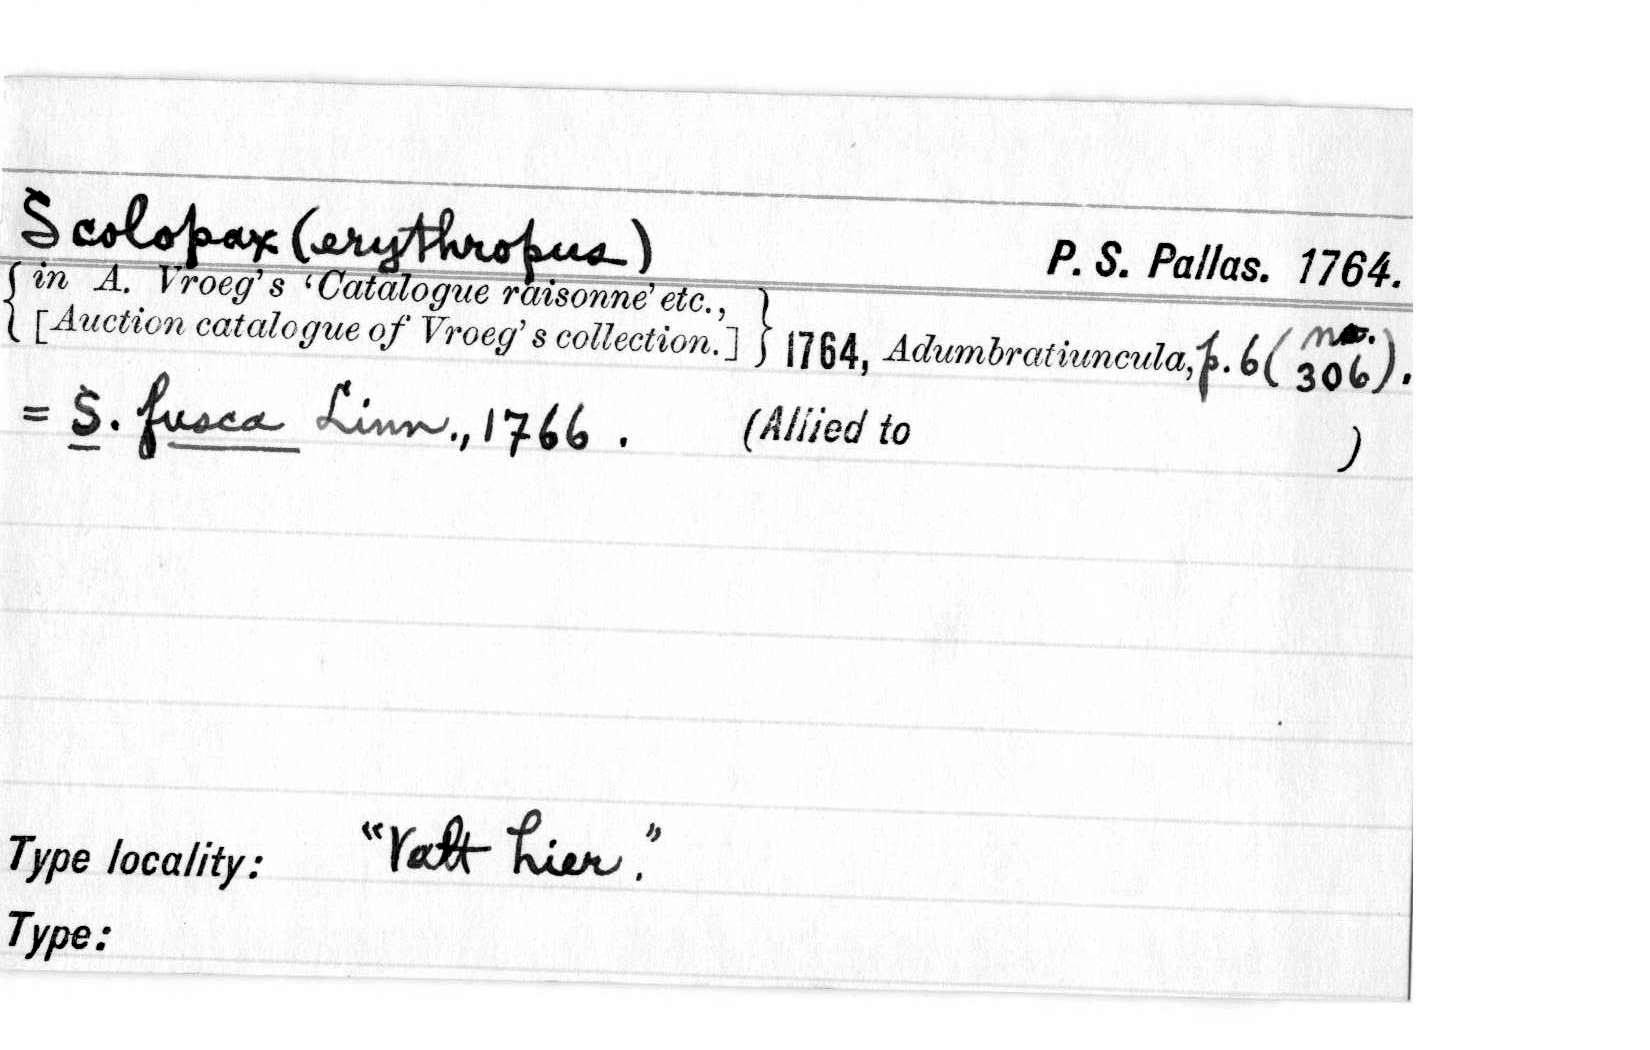 Scolopax (erythropus) P. S. Pallas. 1764.
{ in A. Vroeg's 'Catalogue raisonne' etc.,
[Auction catalogue of Vroeg's collection.] } 1764, Adumbratiuncula, p. 6 ( no. 306 ).
= S. fusca Linn., 1766. (Allied to )
Type locality: "Valt hier."
Type: